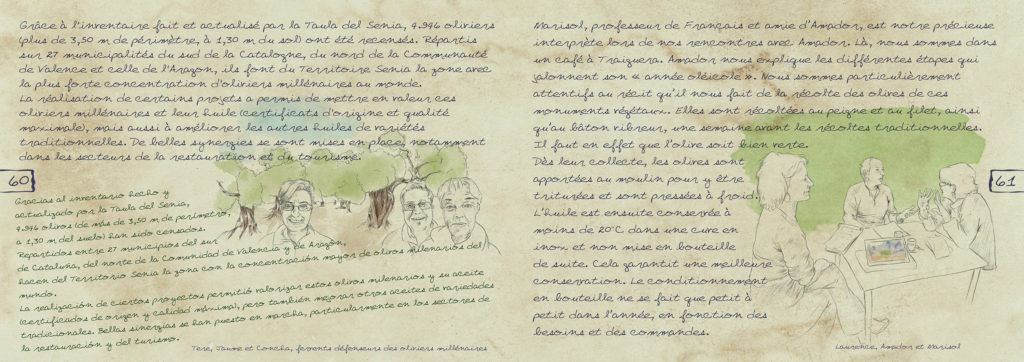 Grâce à l'inventaire fait et actualisé par la Taula del Senia, 4.946 oliviers
(plus de 3,50 m de périmètre, à 1,30 m du sol) ont été recensés. Répartis
sur 27 municipalités du sud de la Catalogne, du nord de la Communauté
de Valence et celle de l'Aragon, ils font du Territoire Senia la zone avec
la plus forte concentration d'oliviers millénaires au monde.
La réalisation de certains projets a permis de mettre en valeur ces
oliviers millénaires et leur huile (certificats d'origine et qualité
maximale), mais aussi à améliorer les autres huiles de variétés
traditionnelles. De belles synergies se sont mises en place, notamment
dans les secteurs de la restauration et du tourisme.
60
Gracias al inventario hecho y
actualizado por la Taula del Senia,
4.946 olivos (de más de 3,50 m de perímetro,
a 1,30 m del suelo) han sido censados.
Repartidos entre 27 municipios del sur
de Cataluña, del norte de la Comunidad de Valencia y de Aragón,
hacen del Territorio Senia la zona con la concentración mayor de olivos milenarios del
mundo.
La realización de ciertos proyectos permitió valorizar estos olivos milenarios y su aceite
(certificados de origen y calidad máxima), pero también mejorar otros aceites de variedades
tradicionales. Bellas sinergias se han puesto en marcha, particularmente en los sectores de
la restauración y del turismo.
Tere, Jaume et Concha, fervents défenseurs des oliviers millénaires
Marisol, professeur de Français et amie d'Amador, est notre précieuse
interprète lors de nos rencontres avec Amador. Là, nous sommes dans
un café à Traiguera. Amador nous explique les différentes étapes qui
jalonnent son « année oléicole ». Nous sommes particulièrement
attentifs au récit qu'il nous fait de la récolte des olives de ces
monuments végétaux. Elles sont récoltées au peigne et au filet, ainsi
qu'au bâton vibreur, une semaine avant les récoltes traditionnelles.
Il faut en effet que l'olive soit bien verte.
Dès leur collecte, les olives sont
apportées au moulin pour y être
triturées et sont pressées à froid.
L'huile est ensuite conservée à
moins de 20°C dans une cuve en
inox et non mise en bouteille
de suite. Cela garantit une meilleure
conservation. Le conditionnement
en bouteille ne se fait que petit à
petit dans l'année, en fonction des
besoins et des commandes.
61
Laurence, Amador et Marisol